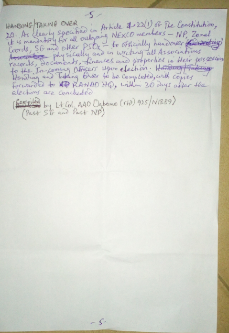 - 5 -
HANDING/TAKING OVER
20. As clearly specified in Article 22(1) of the Constitution,
it is mandatory for all outgoing NEXCO members - NP, Zonal
Coords, SG and other PSCs - to officially handover
physically and in writing all Associations
records, documents, finances and properties in their possession
to the Incoming officers upon election.
Handing and taking over to be completed, with copies
forwarded to RANAO HQ, within 30 days after the
elections are concluded
by Lt Col AAO
(Past SG and Past NP)
- 5 -